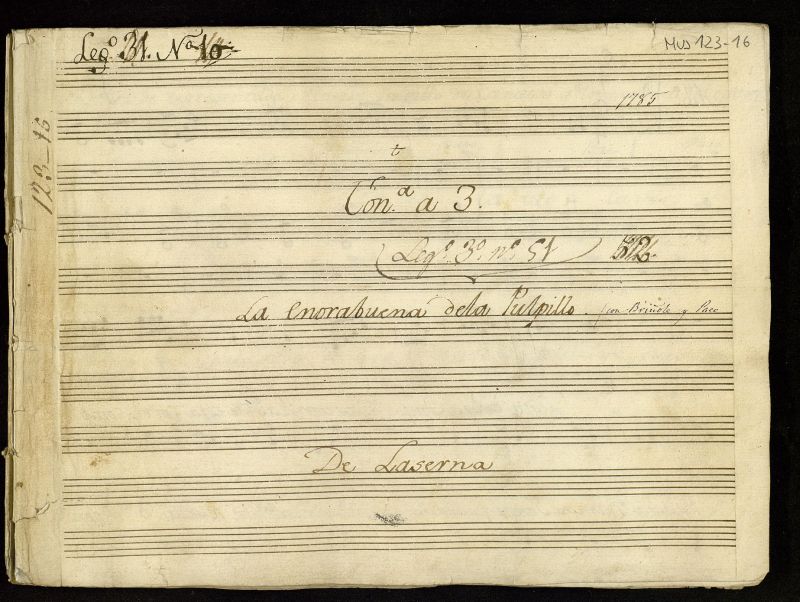 Leg.º 31. N.º 10
Mus 123-16
1785
123-16
t
Ton.ª a 3.
(Leg.º 3.º n.º 51)
La enorabuena dela Pulpillo. (con Briñole y Paco
De Laserna